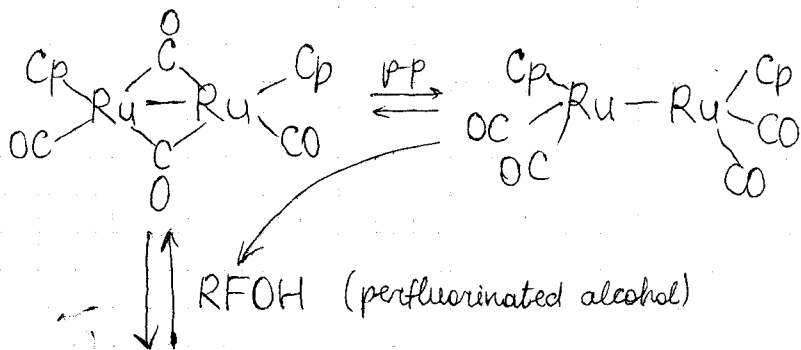 O
C
Cp Ru — Ru Cp
OC CO
C
O
p-p
Cp Ru — Ru Cp
OC CO
OC CO
RFOH (perfluorinated alcohol)